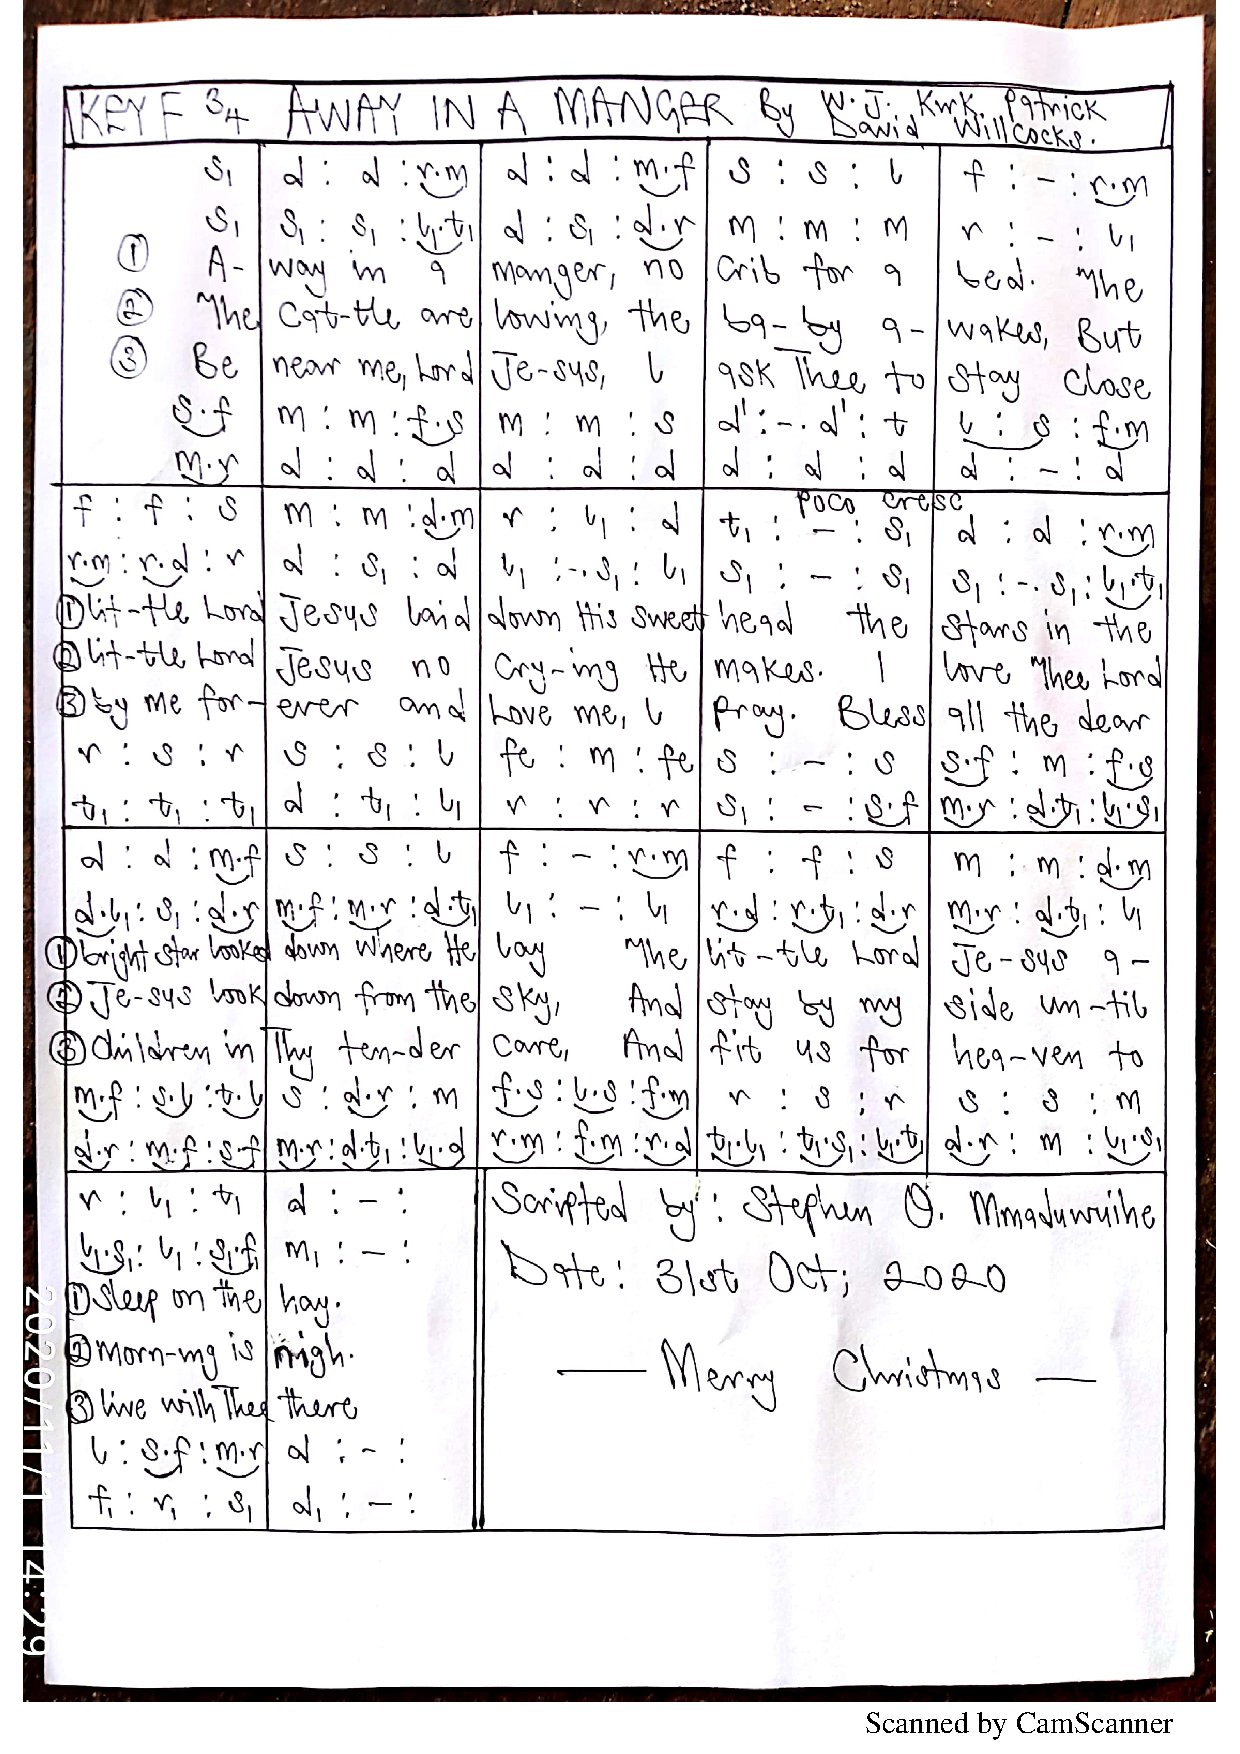 KEY F 3/4 AWAY IN A MANGER By W. J. Kirk. Patrick
David Willcocks.
s₁ | d : d : r.m | d : d : m.f | s : s : l | f : - : r.m
s₁ | s₁ : s₁ : l₁.t₁ | d : s₁ : d.r | m : m : m | r : - : l₁
① A- | way in a | manger, no | Crib for a | bed. The
② The | Cat-tle are | lowing, the | ba-by a- | wakes, But
③ Be | near me, Lord | Je-sus, I | ask Thee to | stay Close
s.f | m : m : f.s | m : m : s | d' : -. d' : t | l : s : f.m
m.r | d : d : d | d : d : d | d : d : d | d : - : d
poco cresc
f : f : s | m : m : d.m | r : l₁ : d | t₁ : - : s₁ | d : d : r.m
r.m : r.d : r | d : s₁ : d | l₁ : -. s₁ : l₁ | s₁ : - : s₁ | s₁ : -. s₁ : l₁.t₁
① lit-tle Lord | Jesus laid | down His sweet | head the | stars in the
② lit-tle Lord | Jesus no | Cry-ing He | makes. I | love Thee Lord
③ by me for- | ever and | Love me, I | Pray. Bless | all the dear
r : s : r | s : s : l | fe : m : fe | s : - : s | s.f : m : f.s
t₁ : t₁ : t₁ | d : t₁ : l₁ | r : r : r | s₁ : - : s.f | m.r : d.t₁ : l₁.s₁
d : d : m.f | s : s : l | f : - : r.m | f : f : s | m : m : d.m
d.l₁ : s₁ : d.r | m.f : m.r : d.t₁ | l₁ : - : l₁ | r.d : r.t₁ : d.r | m.r : d.t₁ : l₁
① bright star looked | down where He | lay The | lit-tle Lord | Je-sus a-
② Je-sus look | down from the | sky, And | stay by my | side un-til
③ Children in | Thy ten-der | care, And | fit us for | hea-ven to
m.f : s.l : t.l | s : d.r : m | f.s : l.s : f.m | r : s : r | s : s : m
d.r : m.f : s.f | m.r : d.t₁ : l₁.d | r.m : f.m : r.d | t₁.l₁ : t₁.s₁ : l₁.t₁ | d.r : m : l₁.s₁
r : l₁ : t₁ | d : - :
l₁.s₁ : l₁ : s₁.f₁ | m₁ : - :
① sleep on the | hay.
② morn-ing is | nigh.
③ live with Thee | there
l : s.f : m.r | d : - :
f₁ : r₁ : s₁ | d₁ : - :
Scripted by : Stephen O. Mmaduwuihe
Date : 31st Oct; 2020
— Merry Christmas —
2020/11/1 14:29
Scanned by CamScanner